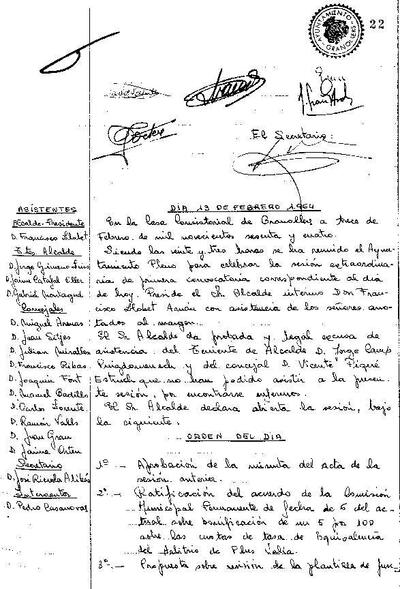 AYUNTAMIENTO
GRANOLLERS
22
El Secretario:
ASISTENTES
Alcalde-Presidente
D. Francisco Llobet
Ttes. Alcalde
D. Jorge
D. Jaime Catafal
D. Gabriel
Concejales
D. Miguel Arenas
D. Juan Sitjes
D. Julian
D. Francisco Ribas
D. Joaquin Font
D. Manuel Badillo
D. Carlos Lorente
D. Ramón Valls
D. Juan Grau
D. Jaime Arten
Secretario
D. José Ricola
Interventor
D. Pedro Casanovas
DIA 13 DE FEBRERO 1.964
En la Casa Consistorial de Granollers a trece de
Febrero de mil novecientos sesenta y cuatro.
Siendo las veinte y tres horas se ha reunido el Ayun-
tamiento Pleno para celebrar la sesión extraordina-
ria de primera convocatoria correspondiente al dia
de hoy. Preside el Sr. Alcalde interino Don Fran-
cisco Llobet con asistencia de los señores ano-
tados al margen.
El Sr. Alcalde da probada y legal excusa de
asistencia del Teniente de Alcalde D. Jorge Camp
y del concejal D. Vicente Piqué
Estruch que no han podido asistir a la presen-
te sesión, por encontrarse enfermos.
El Sr. Alcalde declara abierta la sesión, bajo
la siguiente:
ORDEN DEL DIA
1º - Aprobación de la minuta del acta de la
sesión anterior.
2º - Ratificación del acuerdo de la Comisión
Municipal Permanente de fecha de 5 del ac-
tual sobre bonificación de un 5 por 100
sobre las cuotas de tasa de Equivalencia
del Arbitrio de Plus Valia.
3º - Propuesta sobre revisión de la plantilla de fun-